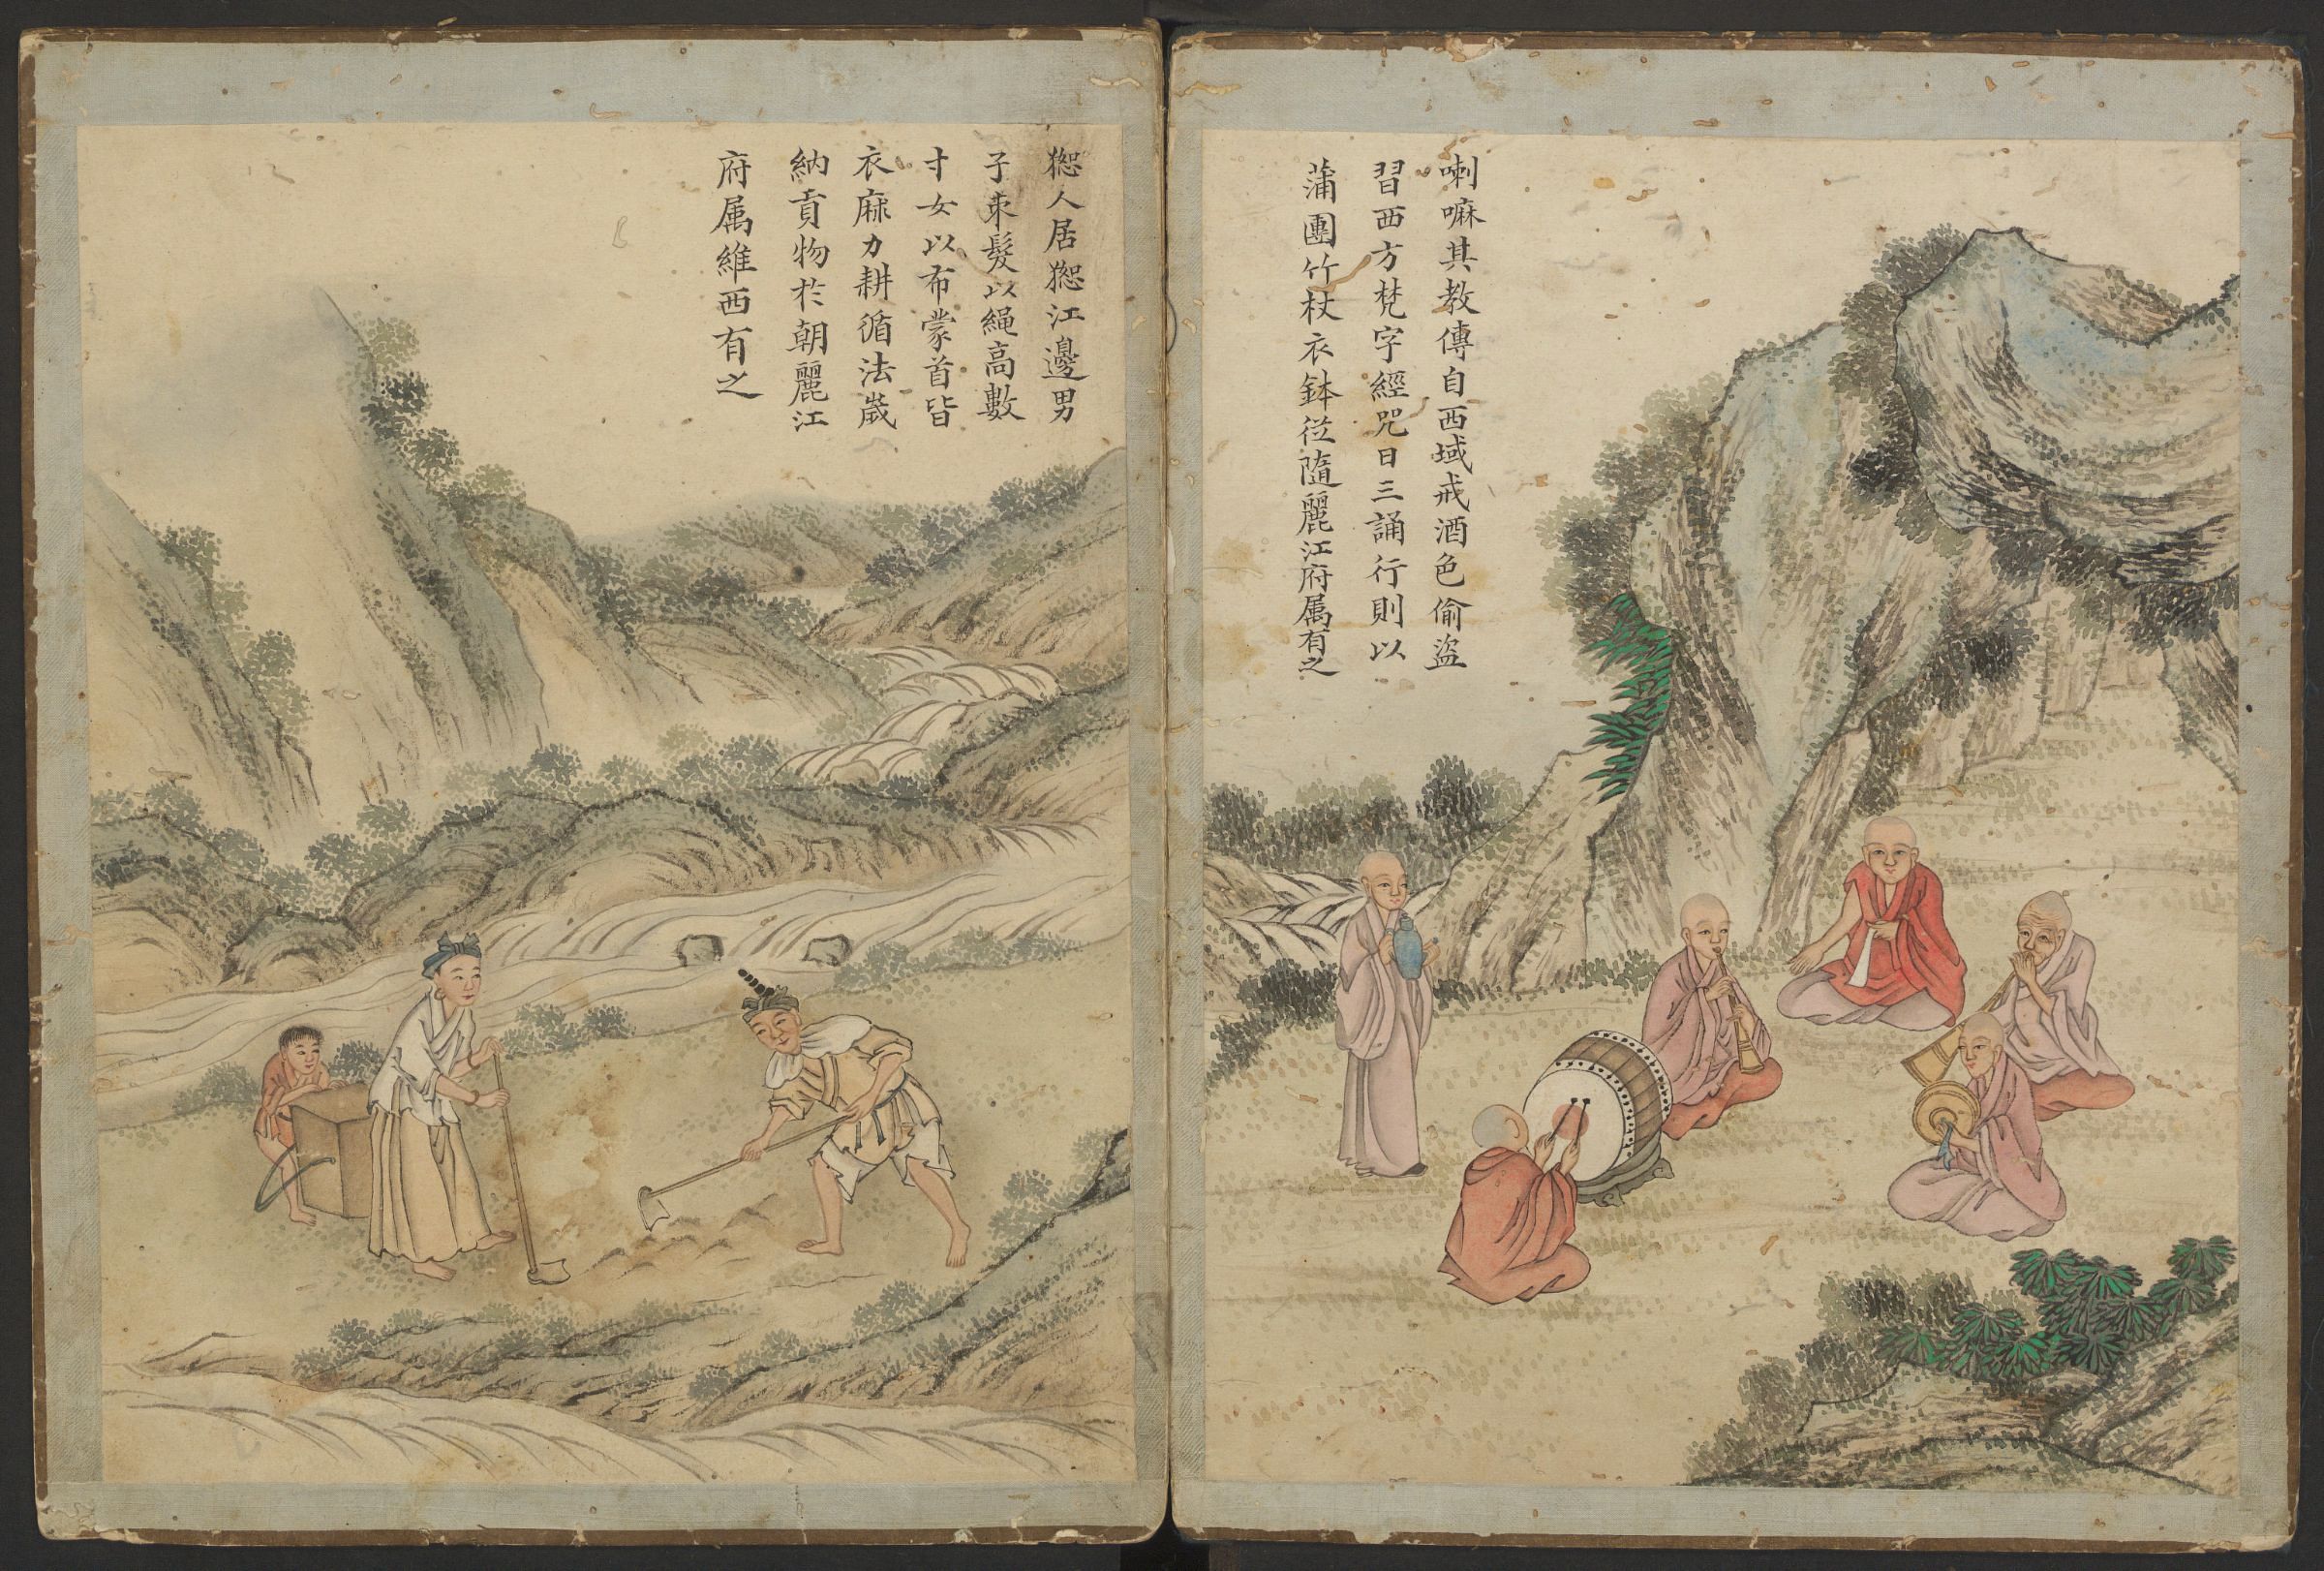 喇嘛其教傳自西域戒酒色偷盜
習西方梵字經咒日三誦行則以
蒲團竹杖衣鉢從隨麗江府属有之
㺜人居㺜江邊男
子束髮以繩高數
寸女以布蒙首皆
衣麻力耕循法歲
納貢物於朝麗江
府属維西有之